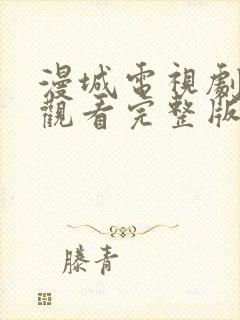 漫城電視劇
觀看完整版
滕青